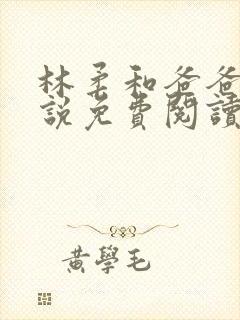 林柔和爸爸
說免費閱讀
黃學毛